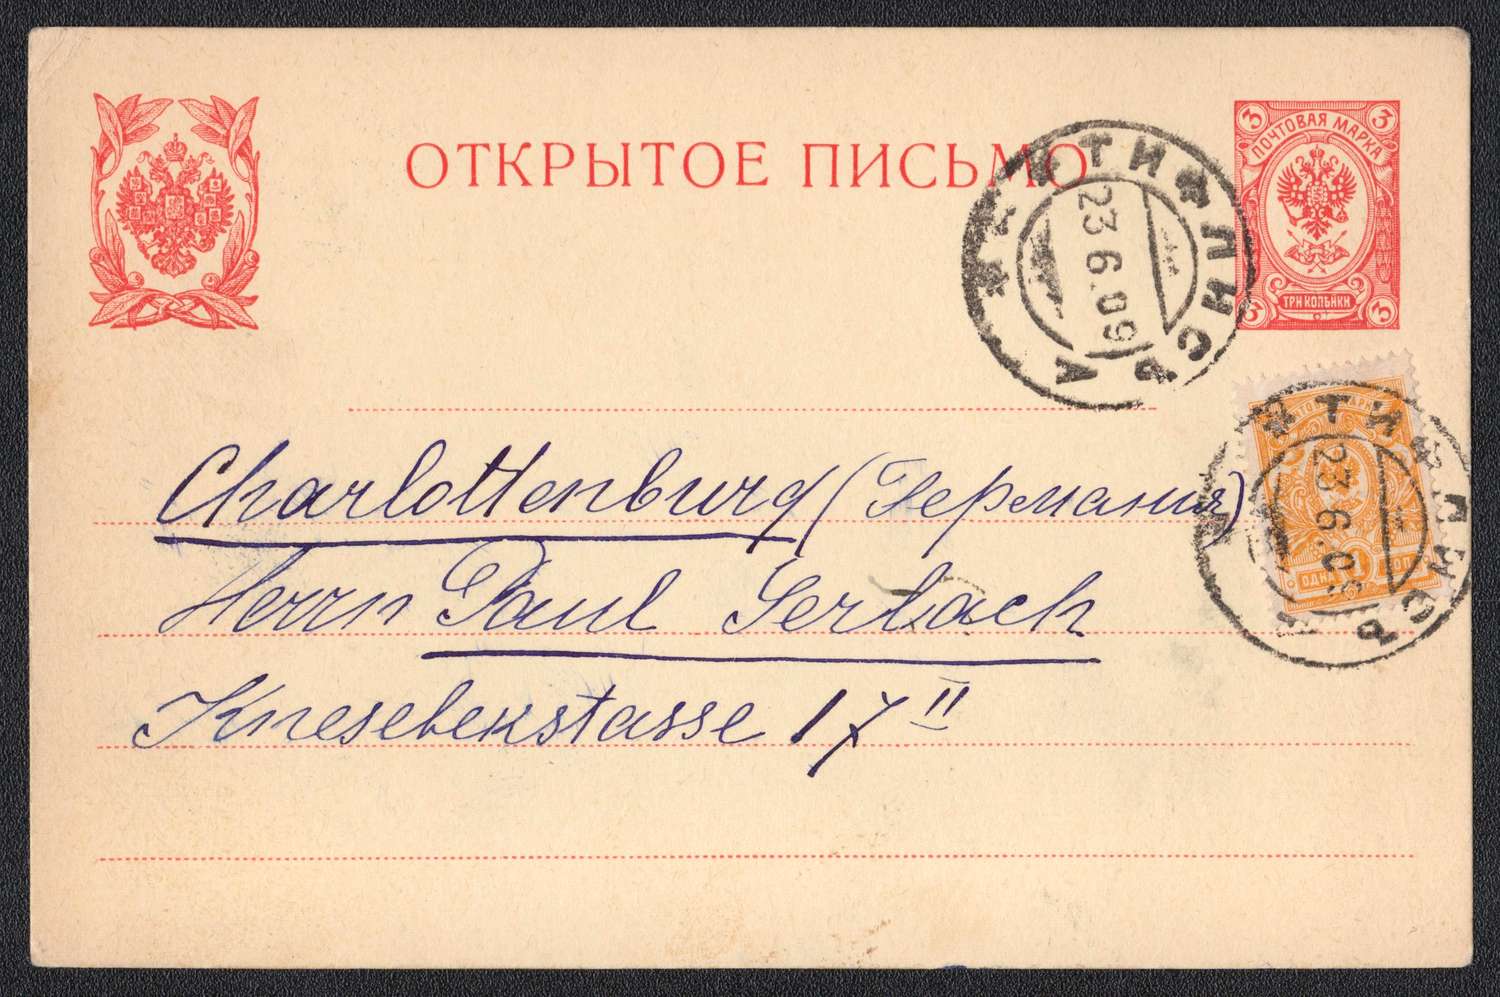 ОТКРЫТОЕ ПИСЬМО
3 3
ПОЧТОВАЯ МАРКА
ТРИ КОПѢЙКИ
3 3
ТИФЛИСЪ
23 6.09
Charlottenburg (Германия)
Herrn Paul Gerlach
Knesebekstasse 17 II
ТИФЛИСЪ
23 6.0
ОДНА 1 КОП